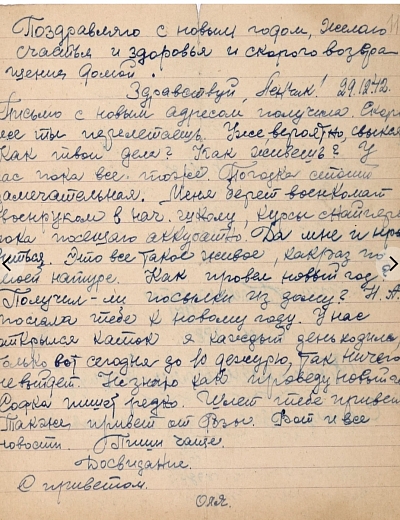 Поздравляю с новым годом, желаю
счастья и здоровья и скорого возвра
щения домой.
Здравствуй, ! 29.12.42.
Письмо с новым адресом получила. Скоро
все ты перелетаешь. Уже вероятно, свыкся
Как твои дела? Как живешь? У
нас пока все тоже. Погода стоит
замечательная. Меня берет военкомат
военруком в нач. школу, курсы снайпера
пока посещаю аккуратно. Да мне и нра
виться. Это все такое живое, как раз по
моей натуре. Как провел новый год?
Получил-ли посылки из дому? Н.А.
послала тебе к новому году. У нас
открылся каток я каждый день ходила,
только вот сегодня до 10 дежурю, так ничего
не выйдет. Не знаю как проведу новый г.
пишет редко. Шлет тебе привет
Также привет от Вот и все
новости. Пиши чаще.
Досвидание.
С приветом.
Оля.